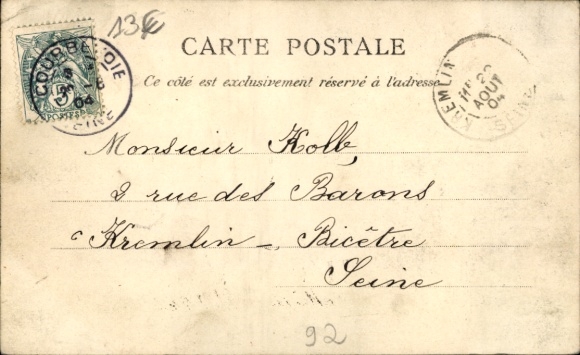 13€
COURBEVOIE
SEINE
04
5
POSTES
CARTE POSTALE
Ce côté est exclusivement réservé à l'adresse
KREMLIN
AOUT
04
SEINE
Monsieur Kolb,
2 rue des Barons
Kremlin-Bicêtre
Seine
92